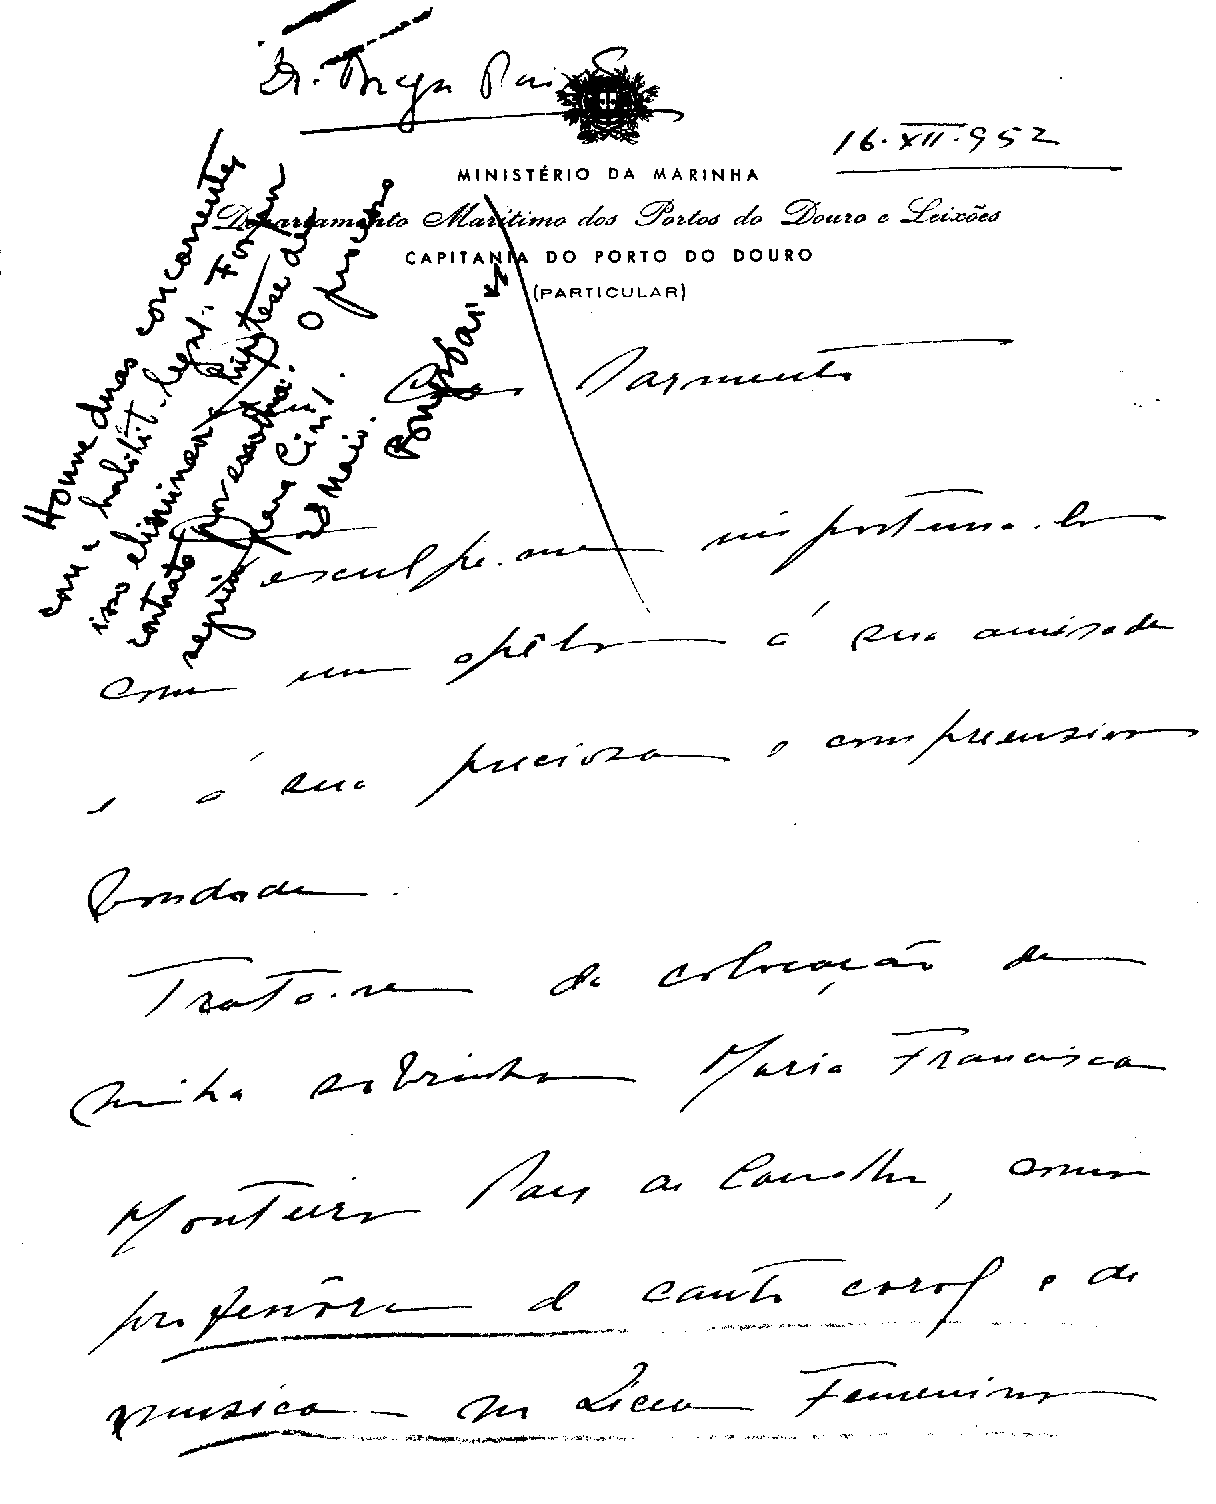 Dr. Braga Paixão
16·XII·952
MINISTÉRIO DA MARINHA
Departamento Marítimo dos Portos do Douro e Leixões
CAPITANIA DO PORTO DO DOURO
(PARTICULAR)
Houve duas concorrentes
com a habilit. legal. Foram
isso eliminou a hipótese de
contrato por escolha. O processo
seguiu para Cinf.
em Maio.
Caro Sarmento
Desculpe-me importuna-lo
com um apêlo á sua amisade
e á sua preciosa e compreensiva
bondade.
Trata-se da colocação de
minha sobrinha Maria Francisca
Monteiro Pais de Carvalho, como
professôra de canto coral e de
musica no Liceu Femenino